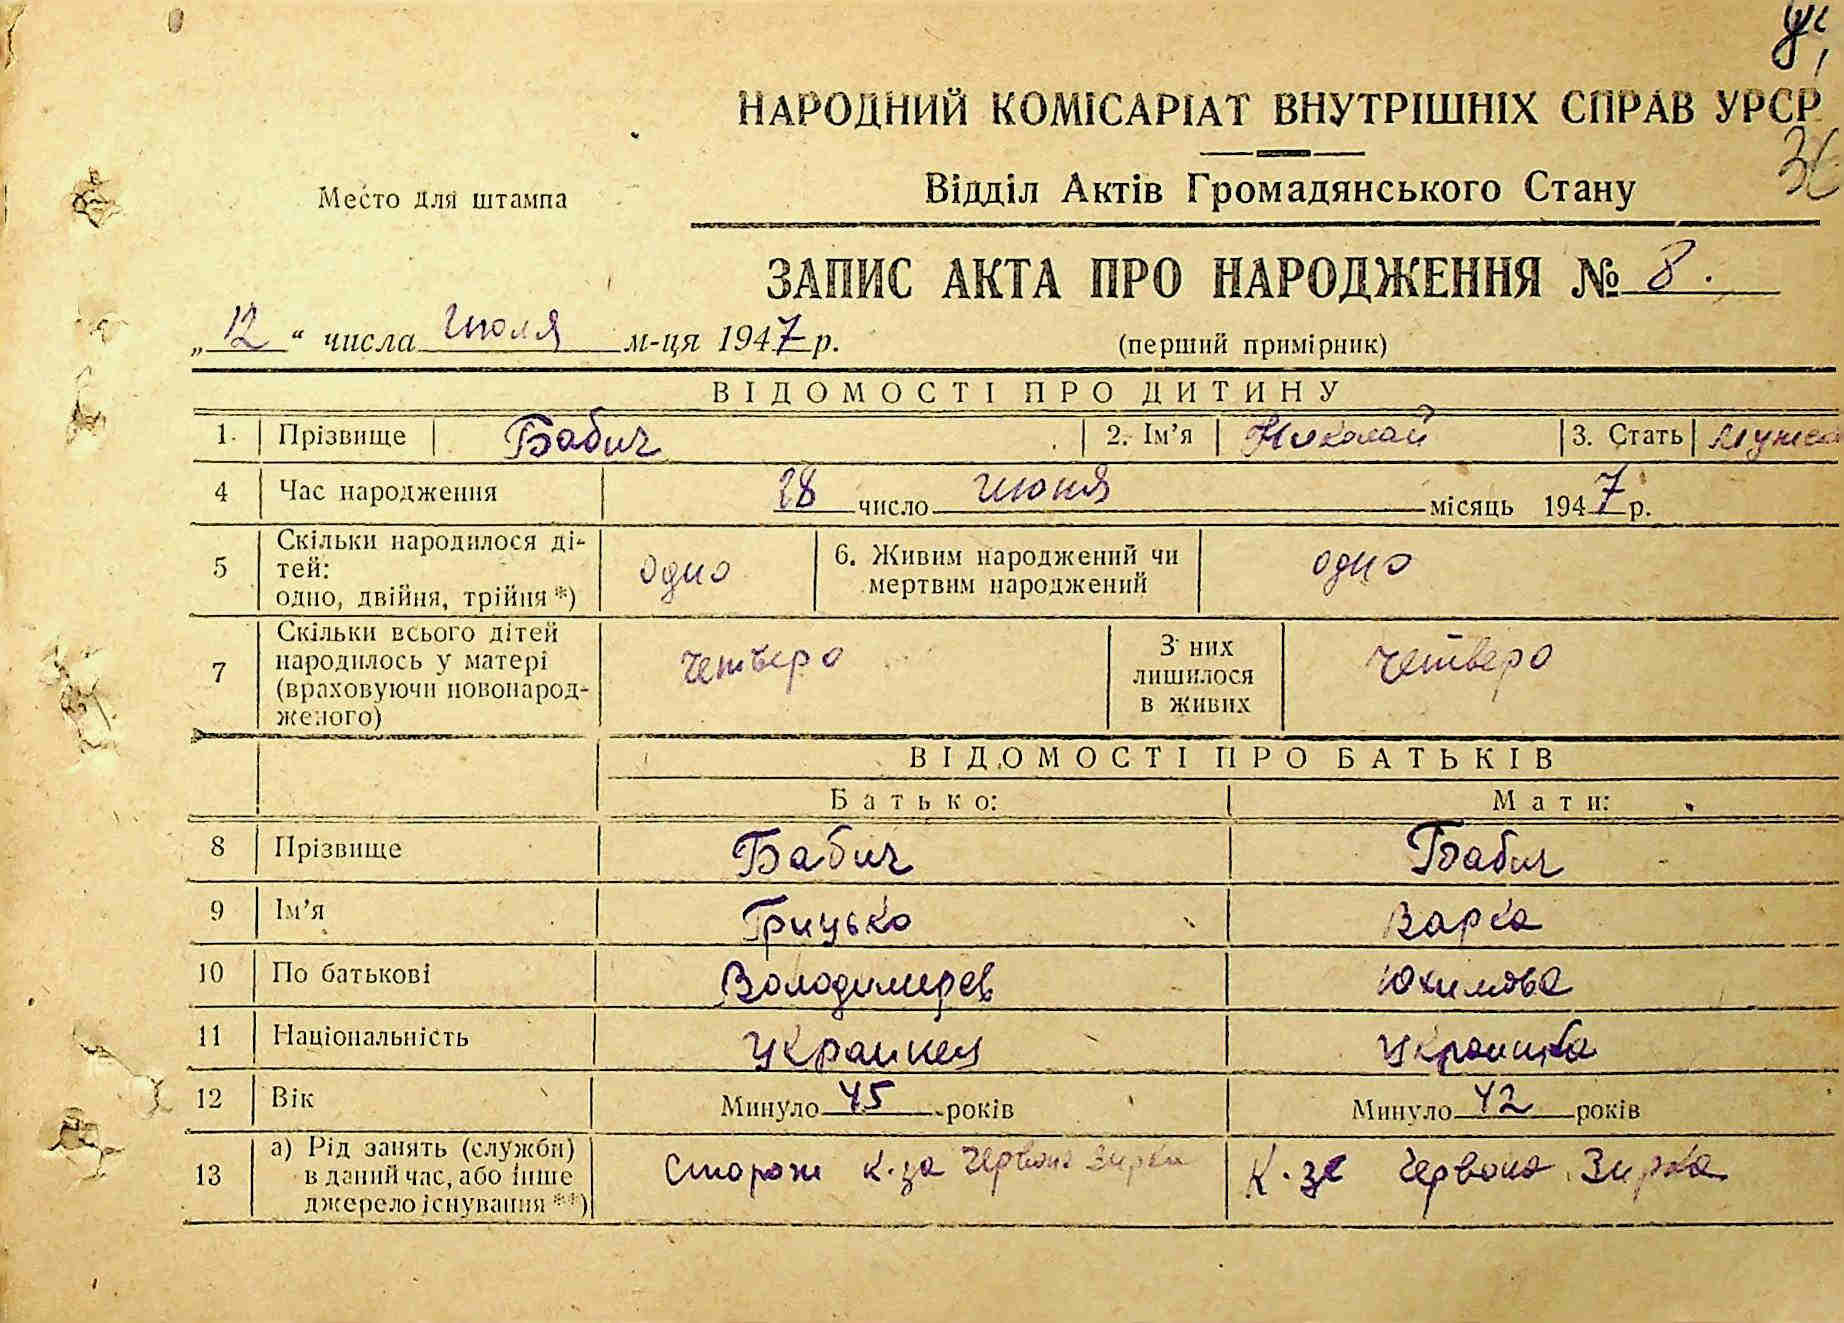 НАРОДНИЙ КОМІСАРІАТ ВНУТРІШНІХ СПРАВ УРСР
Место для штампа
Відділ Актів Громадянського Стану
ЗАПИС АКТА ПРО НАРОДЖЕННЯ № 8.
„12“ числа июля м-ця 1947 р.
(перший примірник)
ВІДОМОСТІ ПРО ДИТИНУ
1. Прізвище Бабич 2. Ім’я Николай 3. Стать мужск
4 Час народження 28 число июня місяць 1947 р.
5 Скільки народилося ді-
тей:
одно, двійня, трійня *) одно 6. Живим народжений чи
мертвим народжений одно
7 Скільки всього дітей
народилось у матері
(враховуючи новонарод-
женого) четверо З них
лишилося
в живих четверо
ВІДОМОСТІ ПРО БАТЬКІВ
Батько: Мати:
8 Прізвище Бабич Бабич
9 Ім’я Грицько Варка
10 По батькові Володимерев Юхимова
11 Національність Украинец Украинка
12 Вік Минуло 45 років Минуло 42 років
13 а) Рід занять (служби)
в даний час, або інше
джерело існування **) Сторож к-за Червона Зирка К-зе Червона Зирка